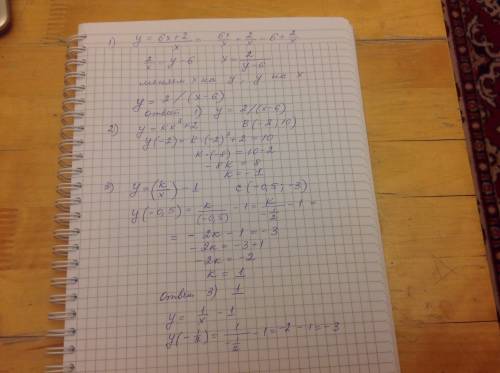 1) y = (6x+2)/x = 6x/x + 2/x = 6 + 2/x
2/x = y-6 x = 2/(y-6)
меняем x на y, y на x
y = 2/(x-6)
ответ 1) y = 2/(x-6)
2) y = kx³+2 B(-2;10)
y(-2) = k·(-2)³+2 = 10
k·(-8) = 10-2
-8k = 8
k = -1
3) y = (k/x) - 1 C(-0,5; -3)
y(-0,5) = k/(-0,5) - 1 = k/(-1/2) - 1 =
= -2k-1 = -3
-2k = -3+1
-2k = -2
k = 1
ответ 3) 1
y = 1/x - 1
y(-1/2) = 1/(-1/2) - 1 = -2-1 = -3